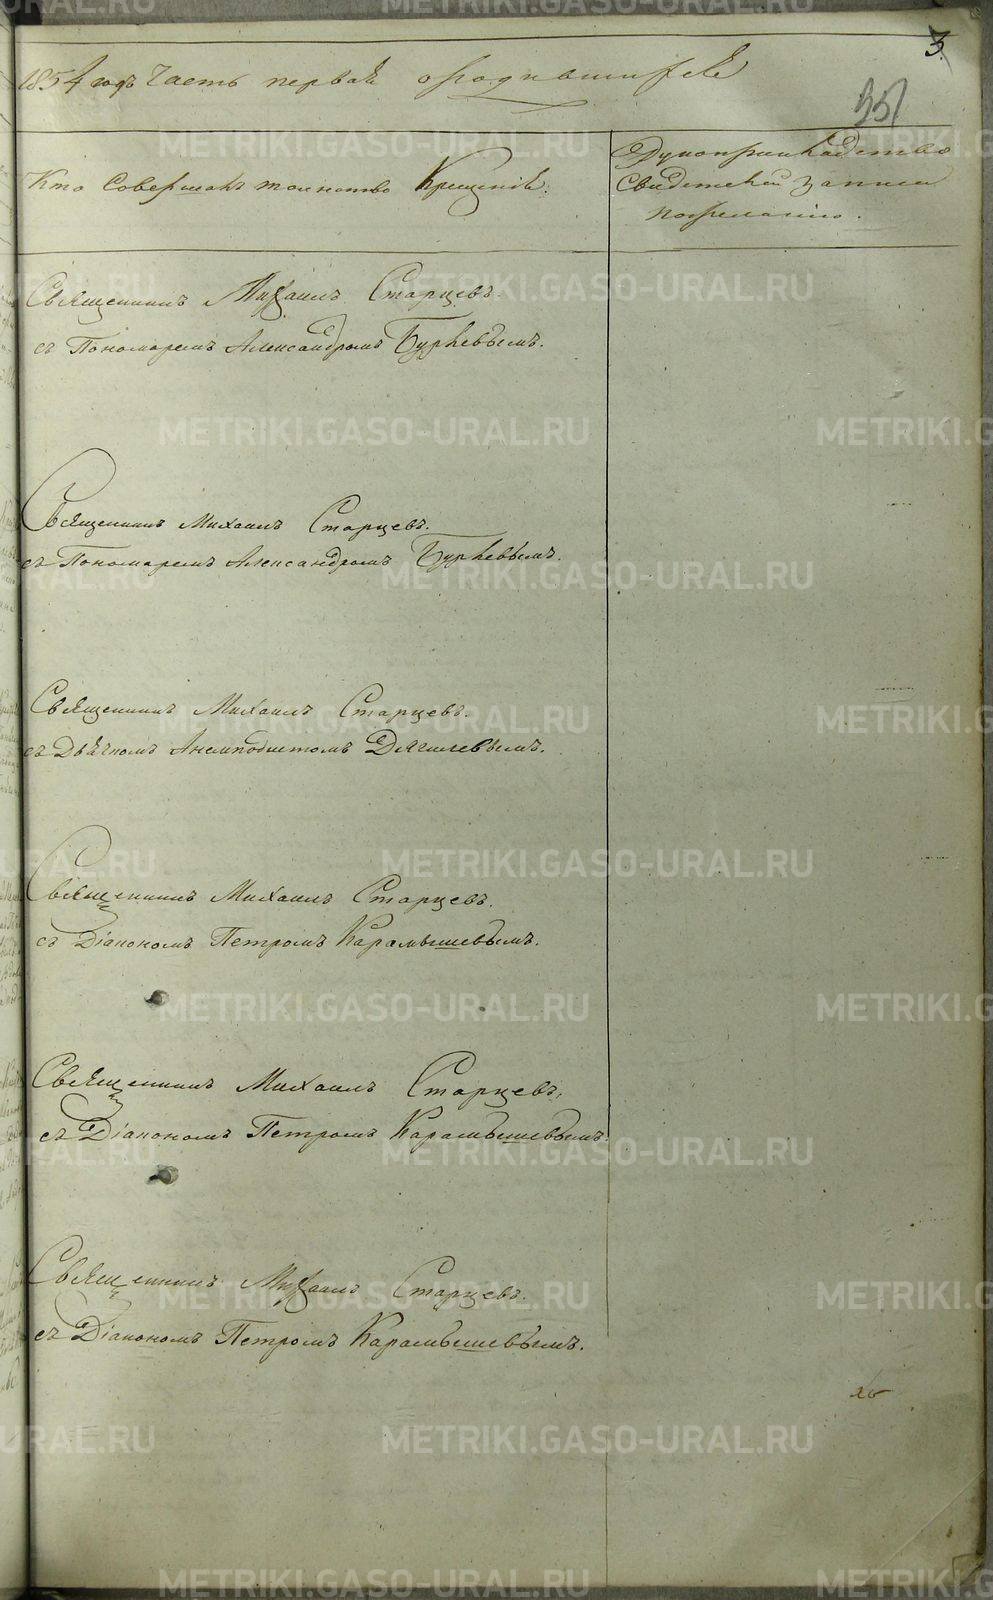 3.
351
1854 годъ Часть первая о родившихся
Кто Совершалъ таинство Крещенія.
Рукоприкладство
Свидетелей записи
по желанію.
Священникъ Михаилъ Старцевъ.
съ Пономаремъ Александромъ
Священникъ Михаилъ Старцевъ.
съ Пономаремъ Александромъ
Священникъ Михаилъ Старцевъ.
съ Дьячкомъ Анемподистомъ Дягилевымъ.
Священникъ Михаилъ Старцевъ.
съ Діакономъ Петромъ Карамышевымъ.
Священникъ Михаилъ Старцевъ,
съ Діакономъ Петромъ Карамышевымъ.
Священникъ Михаилъ Старцевъ.
съ Діакономъ Петромъ Карамышевымъ.
METRIKI.GASO-URAL.RU